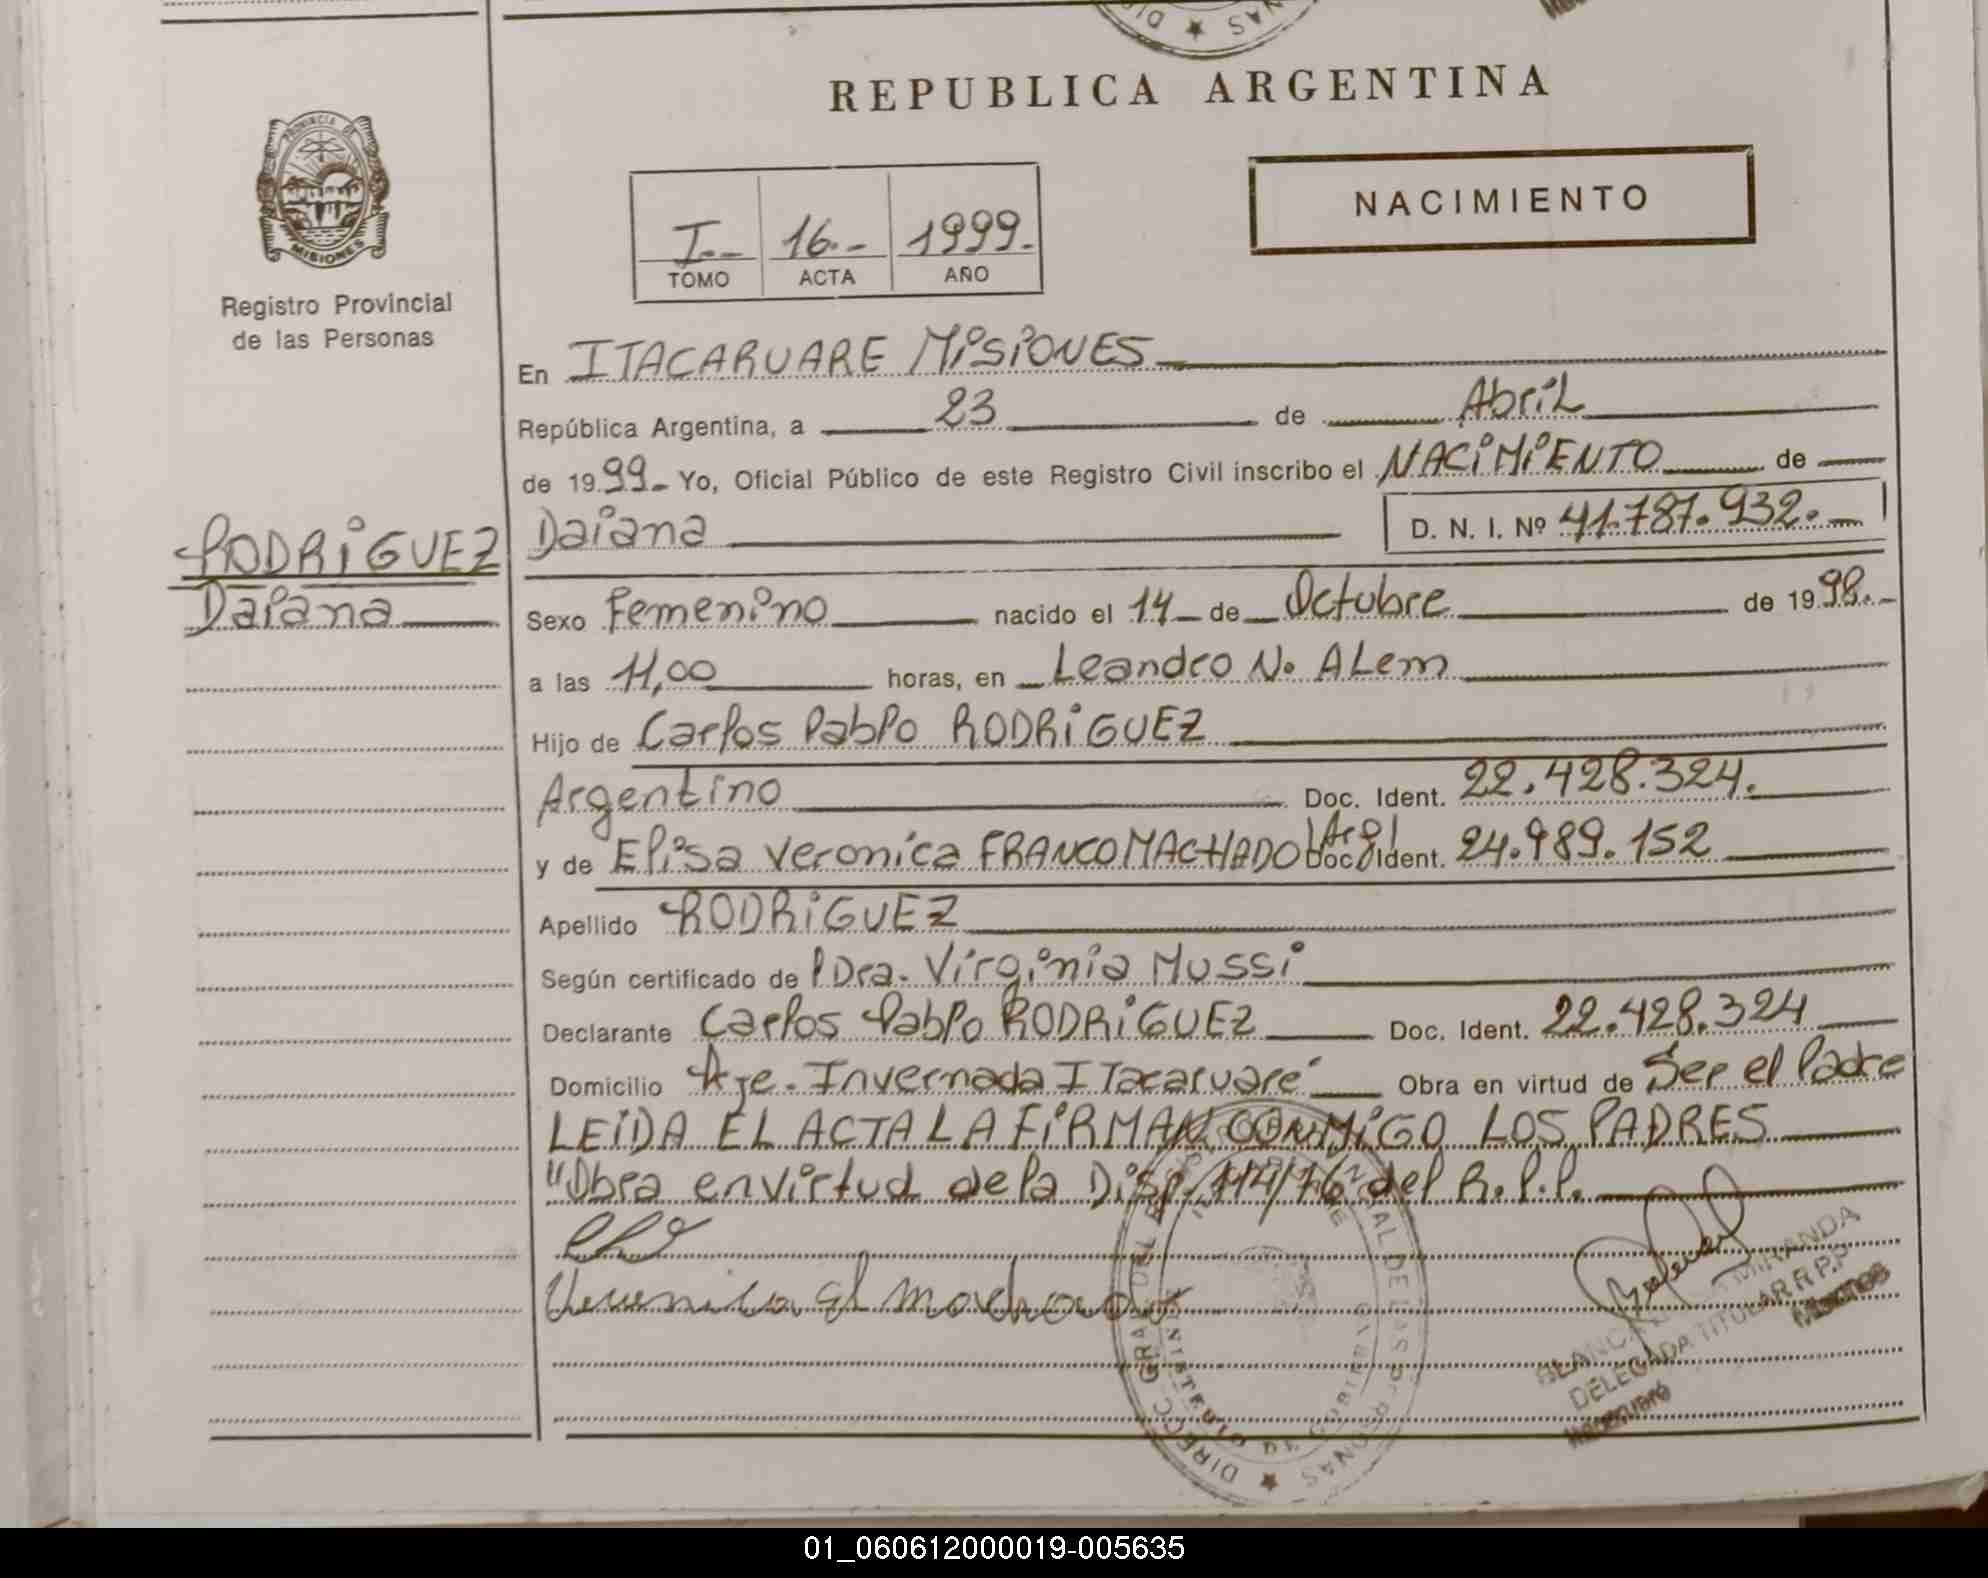 REPUBLICA ARGENTINA
PROVINCIA DE
MISIONES
Registro Provincial
de las Personas
NACIMIENTO
I.-- 16.- 1999.
TOMO ACTA AÑO
En ITACARUARE MISIONES
República Argentina, a 23 de Abril
de 1999- Yo, Oficial Público de este Registro Civil inscribo el NACIMIENTO de
RODRIGUEZ
Daiana
Daiana D. N. I. Nº 41.787.932.-
Sexo Femenino nacido el 14 de Octubre de 1998.-
a las 11,00 horas, en Leandro N. ALem
Hijo de Carlos Pablo RODRIGUEZ
Argentino Doc. Ident. 22.428.324.
y de Elisa Veronica FRANCO MACHADO (Arg) Doc. Ident. 24.989.152
Apellido RODRIGUEZ
Según certificado de Dra. Virginia Mussi
Declarante Carlos Pablo RODRIGUEZ Doc. Ident. 22.428.324
Domicilio Invernada Itacaruaré Obra en virtud de Ser el Padre
LEIDA EL ACTA LA FIRMAN CONMIGO LOS PADRES
"Obra en virtud de la Disp. 114/76 del R.P.P.
MIRANDA
DELEGADA TITULAR R.P.P.
Misiones
DIRECC. GRAL. DE LAS PERSONAS
MINISTERIO DE GOBIERNO
01_060612000019-005635